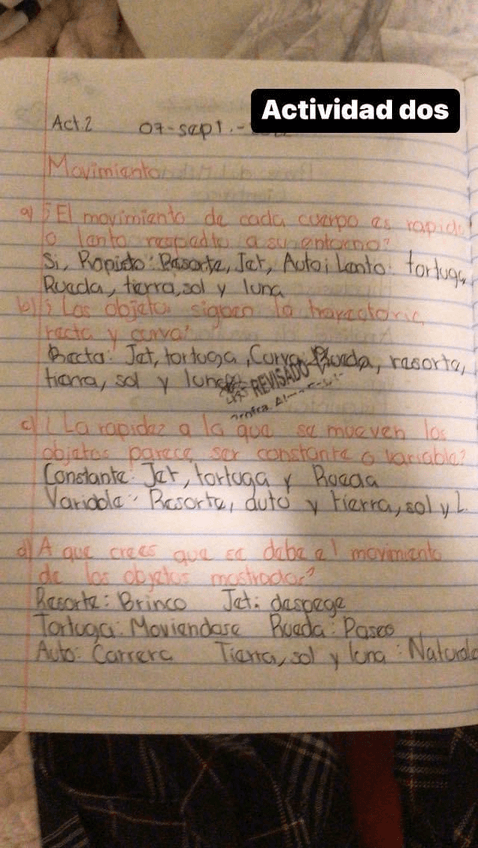 Actividad dos
Act.2 07-sept.-
Movimiento
a) ¿El movimiento de cada cuerpo es rapido
o lento respecto a su entorno?
Si, Rapido: Resorte, Jet, Auto; Lento: tortuga,
Rueda, tierra, sol y luna
b) ¿Los objetos siguen la trayectoria
recta y curva?
Recta: Jet, tortuga, Curva: Rueda, resorte,
tierra, sol y luna
REVISADO
c) ¿La rapidez a la que se mueven los
objetos parece ser constante o variable?
Constante: Jet, tortuga y Rueda
Variable: Resorte, auto y tierra, sol y L
d) A que crees que se debe el movimiento
de los objetos mostrados?
Resorte: Brinco Jet: despege
Tortuga: Moviendose Rueda: Paseo
Auto: Carrera Tierra, sol y luna: Natural